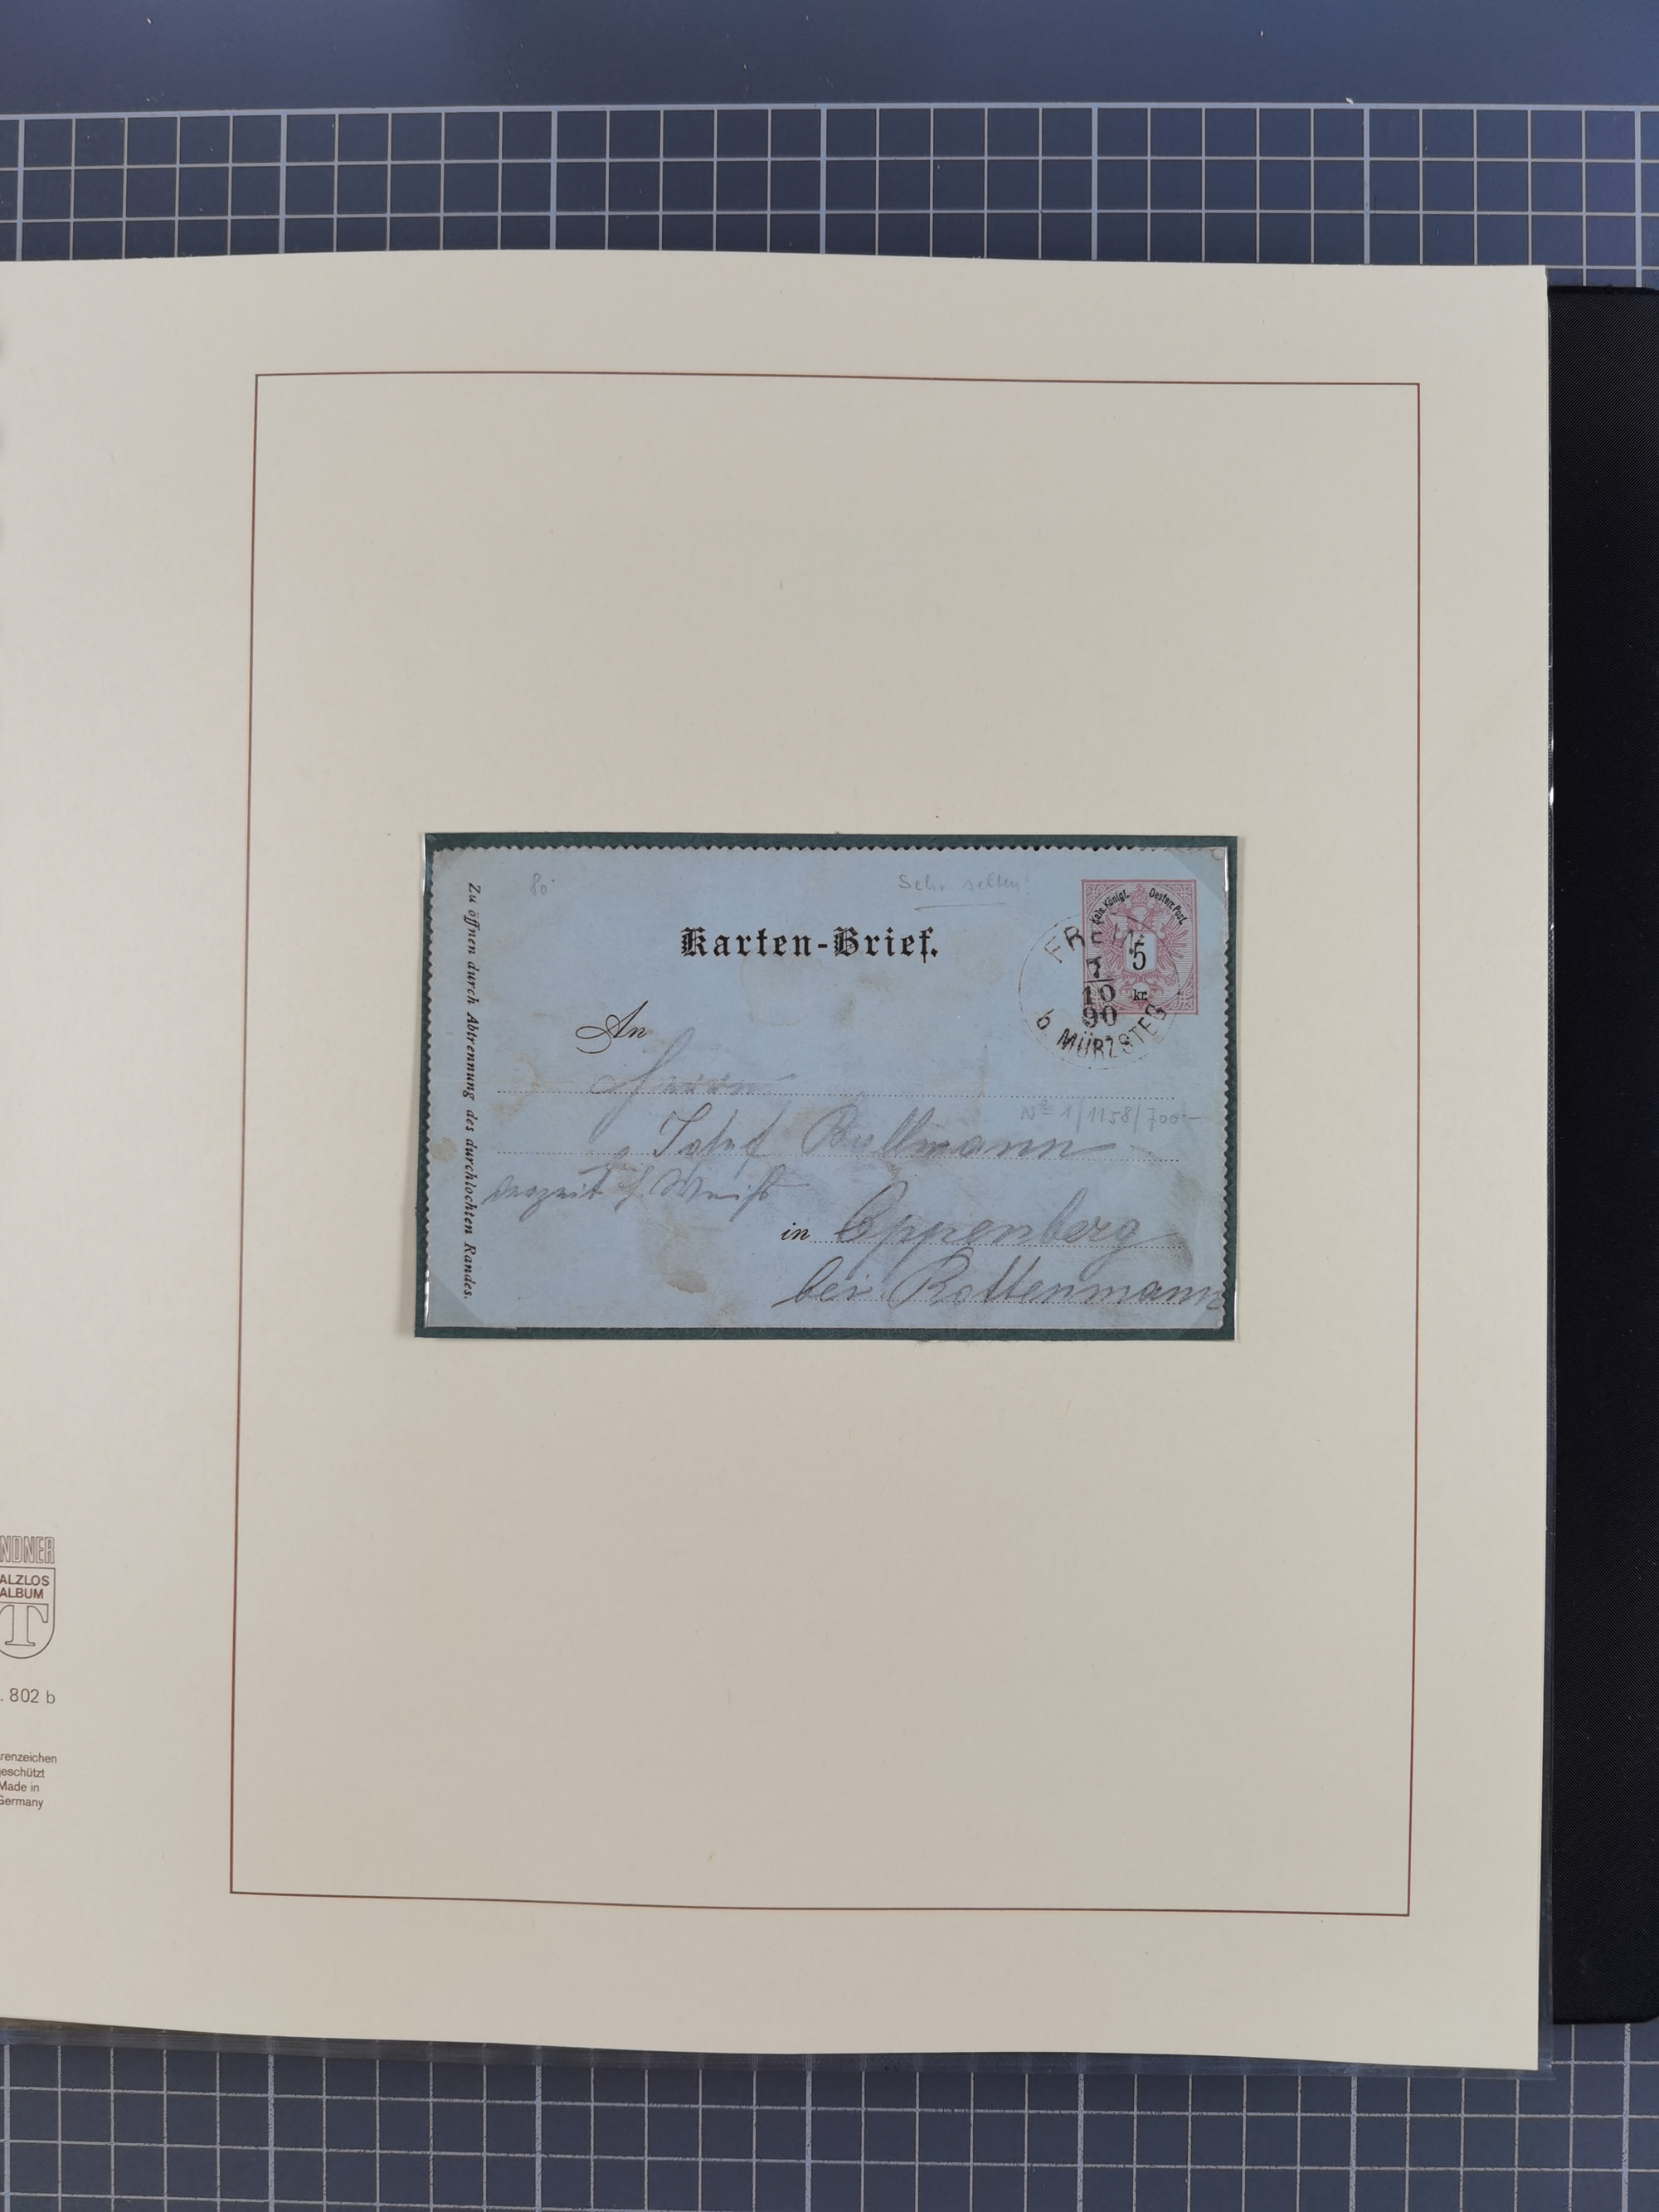 Zu öffnen durch Abtrennung des durchlochten Randes.
80
Sehr selten!
Kais. Königl. Oesterr. Post.
5
kr.
Karten-Brief.
FREIN
7
10
90
b MÜRZSTEG
An
Herrn
No 1/1158/700.-
Josef Bullmann
in Oppenberg
bei Rottenmann
NDNER
ALZLOS
ALBUM
T
. 802 b
renzeichen
eschützt
Made in
Germany